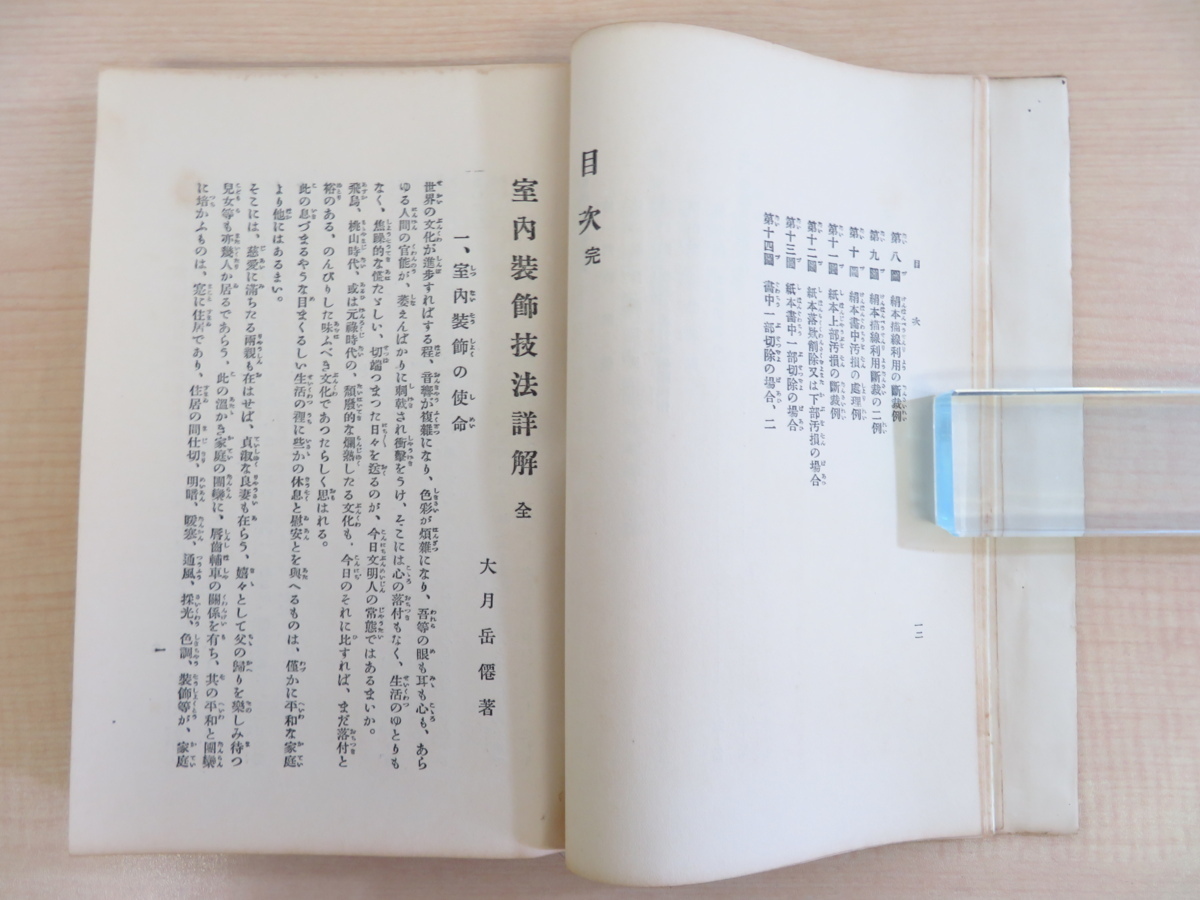 目次
第八圖 絹本縞線利用の斷裁例
第九圖 絹本縞線利用斷裁の二例
第十圖 絹本畵中汚損の處理例
第十一圖 紙本上部汚損の斷裁例
第十二圖 紙本落欵削除又は下部汚損の場合
第十三圖 紙本畵中一部切除の場合
第十四圖 畵中一部切除の場合、二
目次 完
一二
室內裝飾技法詳解 全
大月岳僊著
一、室內裝飾の使命
世界の文化が進步すればする程、音響が複雜になり、色彩が煩雜になり、吾等の眼も耳も心も、あら
ゆる人間の官能が、萎えんばかりに刺戟され衝擊をうけ、そこには心の落付もなく、生活のゆとりも
なく、焦躁的な慌たゞしい、切端つまつた日々を送るのが、今日文明人の常態ではあるまいか。
飛鳥、桃山時代、或は元祿時代の、頽廢的な爛熟したる文化も、今日のそれに比すれば、まだ落付と
裕のある、のんびりした味ふべき文化であつたらしく思はれる。
此の息づまるやうな目まくるしい生活の裡に些かの休息と慰安とを與へるものは、僅かに平和な家庭
より他にはあるまい。
そこには、慈愛に滿ちたる兩親も在はせば、貞淑な良妻も在らう、嬉々として父の歸りを樂しみ待つ
兒女等も亦幾人か居るであらう、此の溫かき家庭の團欒に、脣齒輔車の關係を有ち、其の平和と團欒
に培かふものは、寔に住居であり、住居の間仕切、明暗、暖寒、通風、採光、色調、裝飾等が、家庭
一